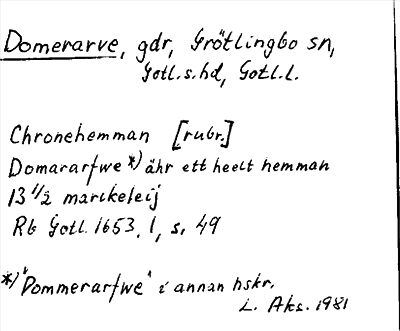 Domerarve, gdr, Grötlingbo sn,
Gotl.s.hd, Gotl.l.
Chronehemman [rubr.]
Domararfwe *) ähr ett heelt hemman
13 1/2 marckeleij
Rb Gotl. 1653, 1, s. 49
*) "Dommerarfwe" i annan hskr.
L. Aks. 1981